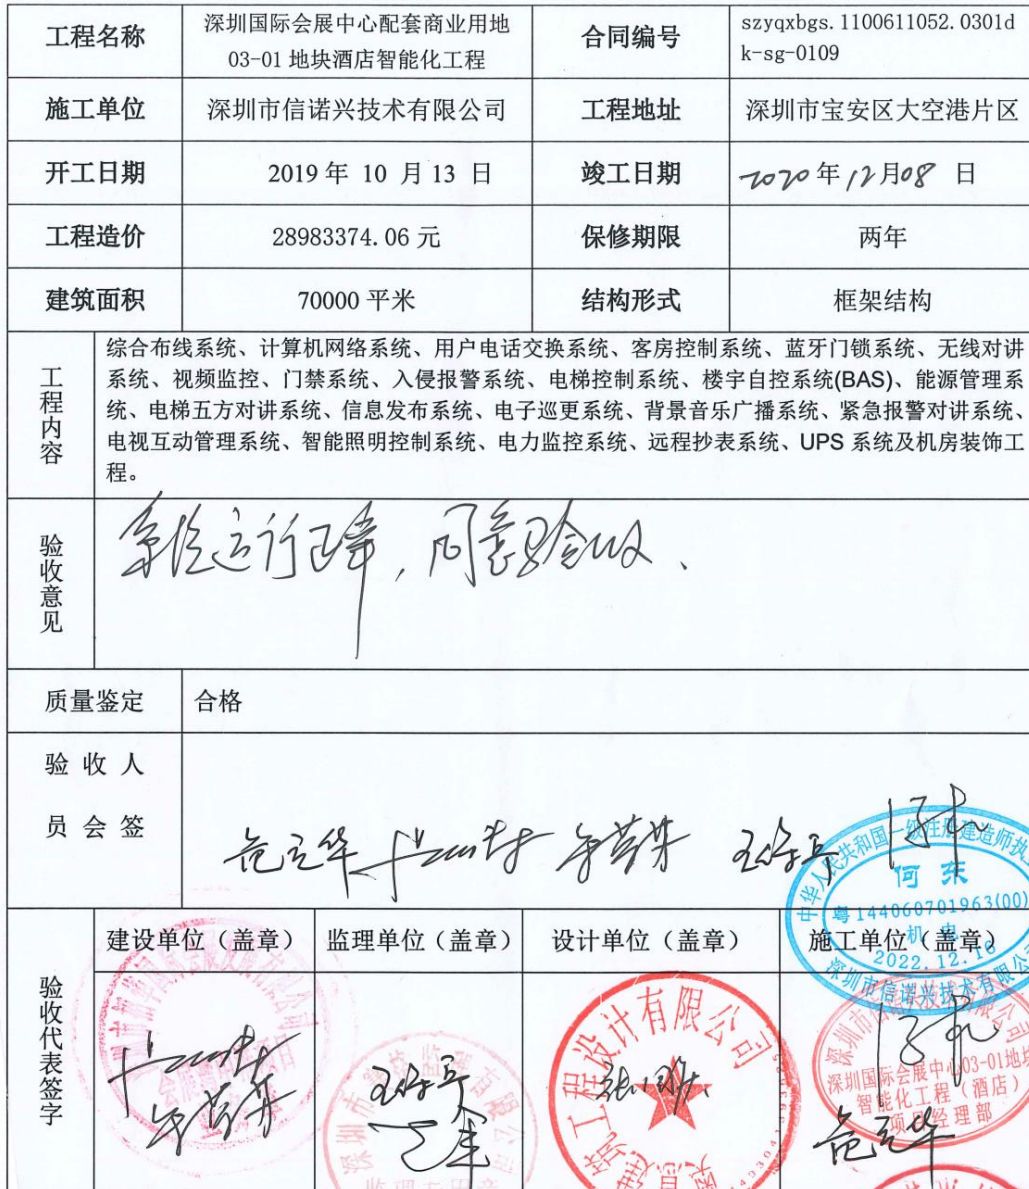 工程名称
深圳国际会展中心配套商业用地
03-01 地块酒店智能化工程
合同编号
szyqxbgs.1100611052.0301d
k-sg-0109
施工单位
深圳市信诺兴技术有限公司
工程地址
深圳市宝安区大空港片区
开工日期
2019 年 10 月 13 日
竣工日期
2020 年 12 月 08 日
工程造价
28983374.06 元
保修期限
两年
建筑面积
70000 平米
结构形式
框架结构
工程内容
综合布线系统、计算机网络系统、用户电话交换系统、客房控制系统、蓝牙门锁系统、无线对讲
系统、视频监控、门禁系统、入侵报警系统、电梯控制系统、楼宇自控系统(BAS)、能源管理系
统、电梯五方对讲系统、信息发布系统、电子巡更系统、背景音乐广播系统、紧急报警对讲系统、
电视互动管理系统、智能照明控制系统、电力监控系统、远程抄表系统、UPS 系统及机房装饰工
程。
验收意见
系统运行正常，同意验收、
质量鉴定
合格
验 收 人
员 会 签
中华人民共和国一级注册建造师执业
何东
粤144060701963(00)
机电
2022.12.16
深圳市信诺兴技术有限公司
验收代表签字
建设单位（盖章）
监理单位（盖章）
设计单位（盖章）
施工单位（盖章）
工程设计有限公司
深圳国际会展中心03-01地块
智能化工程（酒店）
项目经理部